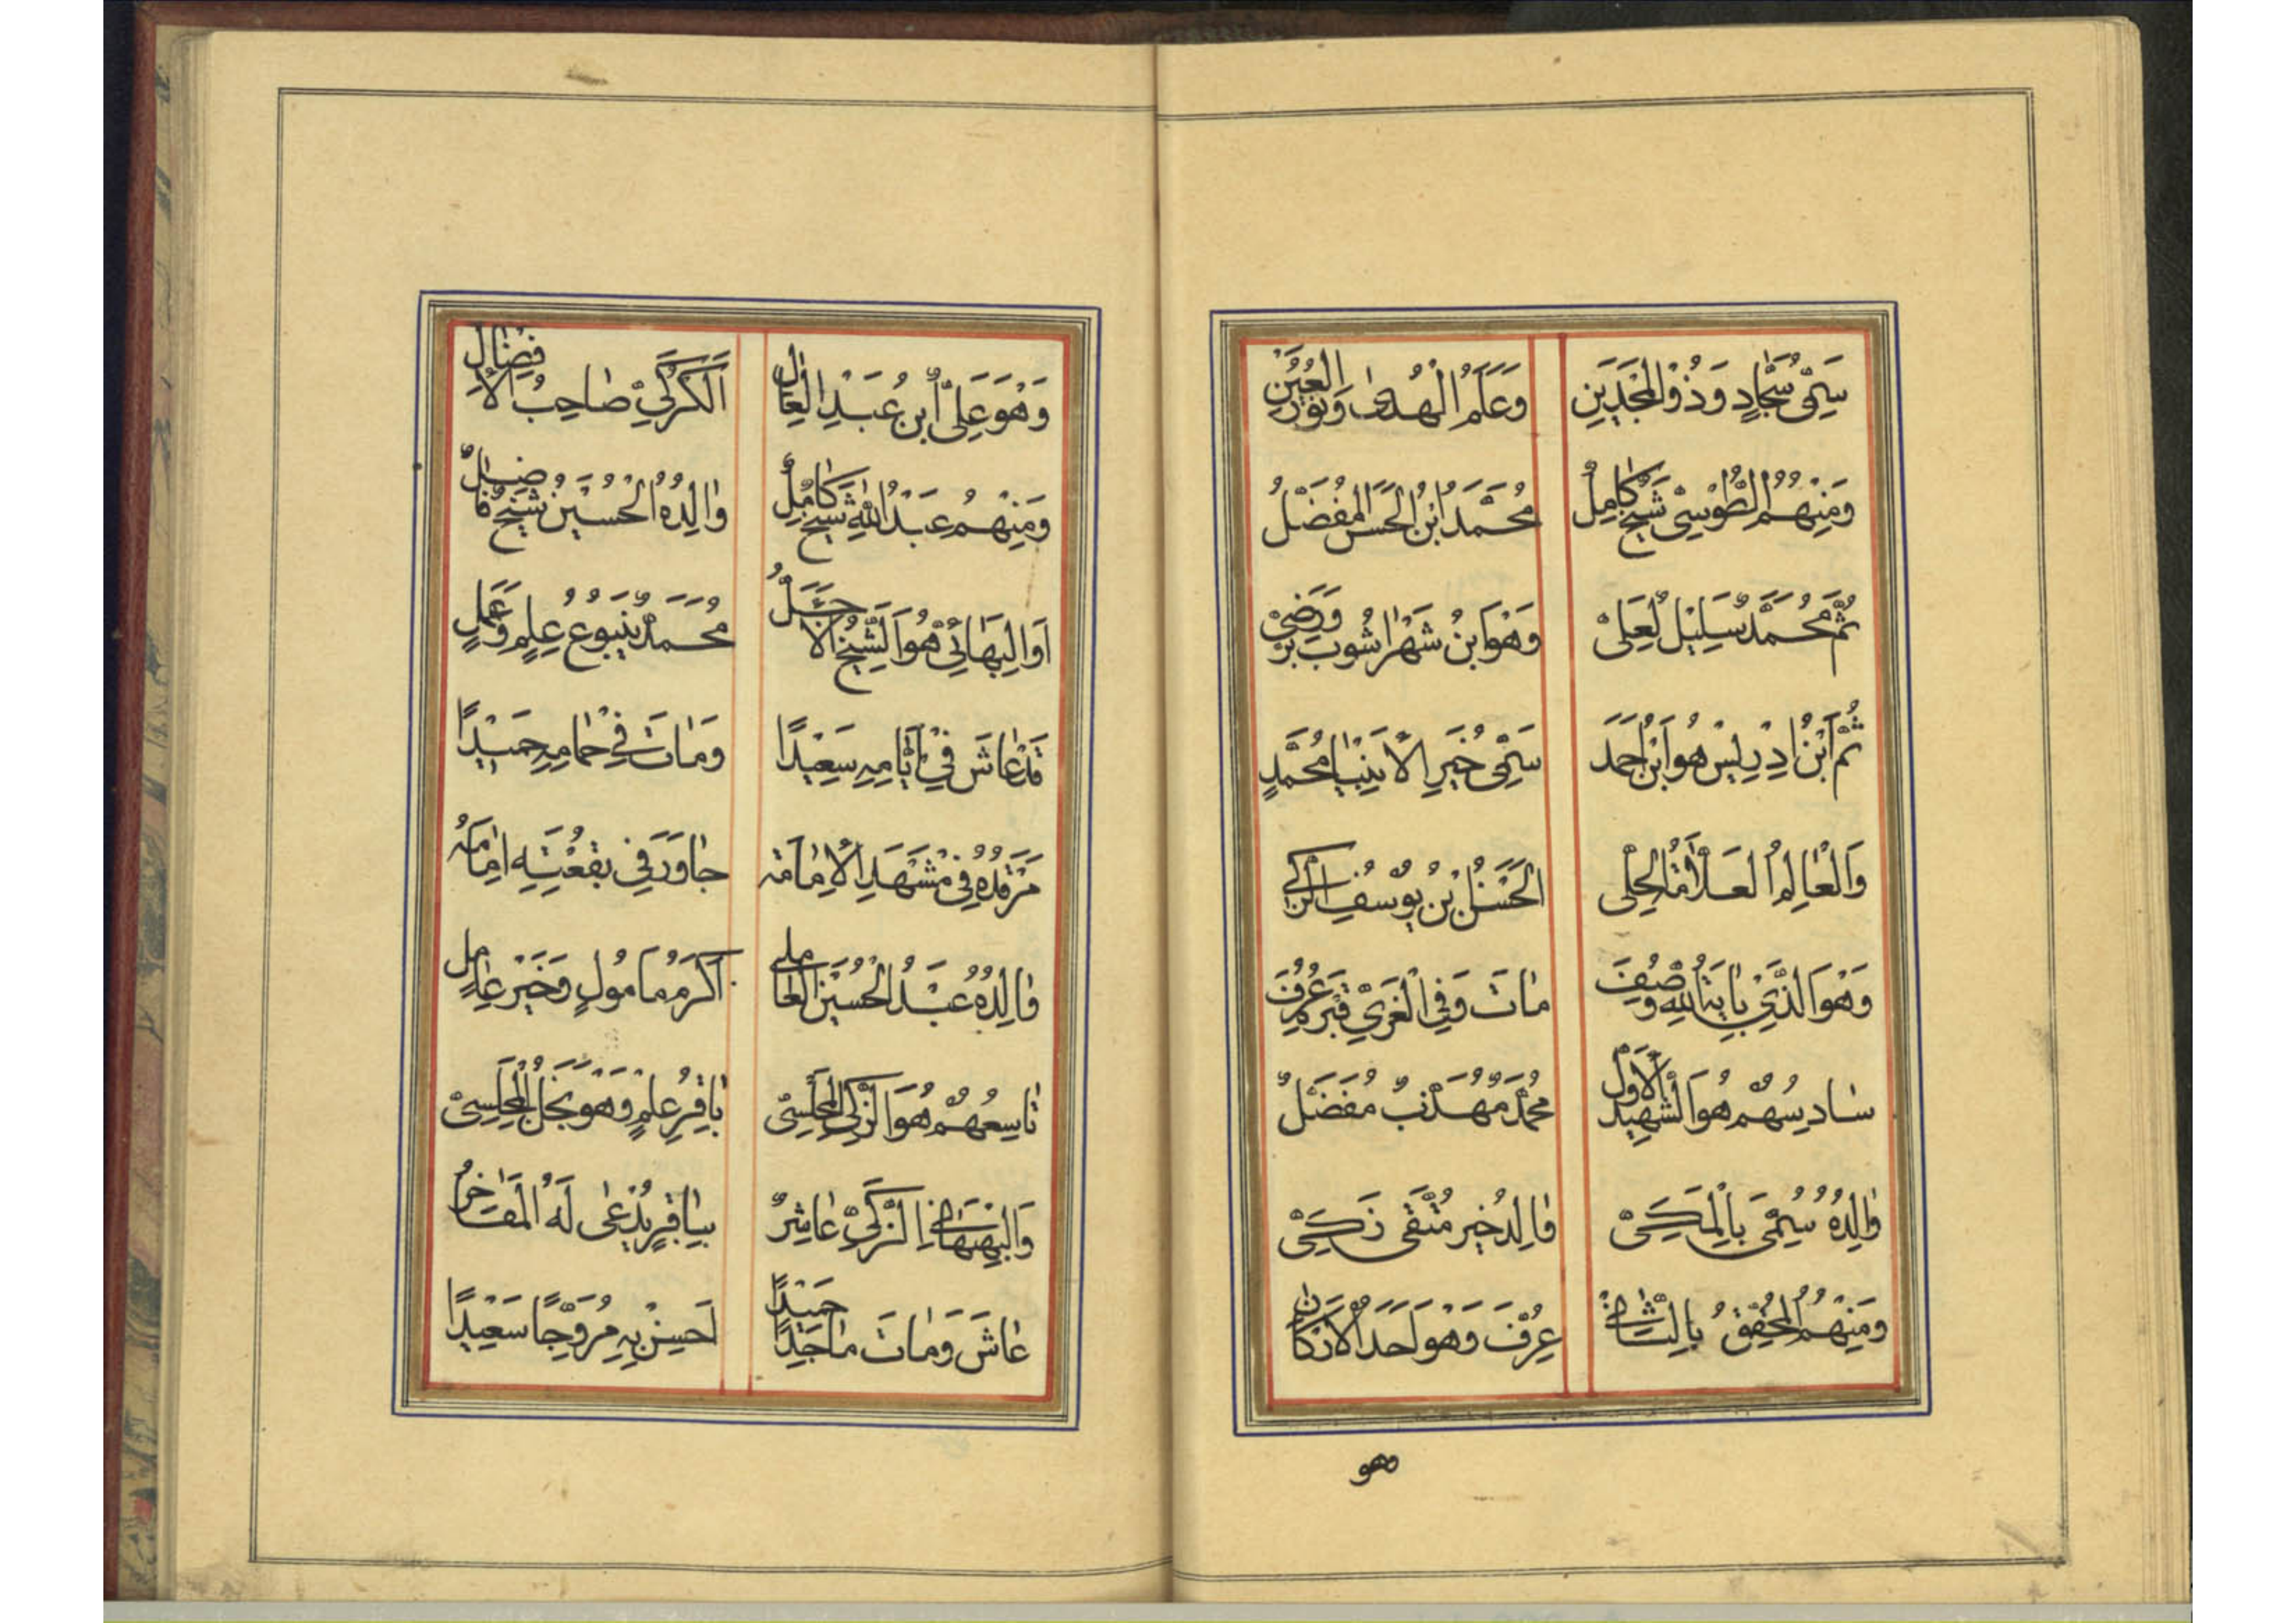 سَمِیُّ سَجَّادٍ وَذُوالْمَجْدَینِ وَعَلَمُ الْهُدیٰ وَنُورُ الْعَیْنِ
وَمِنْهُمُ الطُّوْسِیْ شَیْخٌ کٰامِلُ مُحَمَّدُ ابْنُ الْحَسَنِ الْمُفَضَّلُ
ثُمَّ مُحَمَّدٌ سَلِیْلُ لْعَلِیْ وَهْوَ ابْنُ شَهْرٰاشُوبَ بَرٌّ وَرَضِیْ
ثُمَّ ابْنُ اِدْرِیسْ هُوَ ابْنُ اَحْمَدَ سَمِیُّ خَیْرِ الْاَنْبِیٰا مُحَمَّدٍ
وَالْعٰالِمُ الْعَلّٰامَةُ الْحِلّی الْحَسَنُ بْنُ یُوسُفِ الزَّکِی
وَهْوَ الَّذِیْ بِاٰیَةِ اللّٰهِ وُصِفَ مٰاتَ وَفِی الْغَرِیِّ قَبْرُهُ عُرِفَ
سٰادِسُهُمْ هُوَ الشَّهِیْدُ الْاَوَّلُ مُحَمَّدٌ مُهَذَّبٌ مُفَضَّلٌ
وٰالِدُهُ سُمِّیَ بِالْمَکِّیْ وٰالِدُ خَیْرٍ مُتَّقی زَکِیْ
وَمِنْهُمُ الْمُحَقِّقُ بِالثّٰانِیْ عُرِفَ وَهْوَ اَحَدُ الْاَرْکٰانِ
وهو
وَهْوَ عَلِیُّ ابنُ عَبْدِ الْعٰالِ اَلْکَرَکِیْ صٰاحِبُ الْاِفْضٰالِ
وَمِنْهُمُ عَبْدُ اللّٰهِ شَیْخٌ کٰامِلٌ وٰالِدُهُ الْحُسَیْنُ شَیْخٌ فٰاضِلٌ
اَوِ الْبَهٰائِیْ هُوَ الشَّیْخُ الْاَجَلُّ مُحَمَّدٌ یَنْبُوعُ عِلْمٍ وَعَمَلٍ
قَدْ عٰاشَ فِیْ اَیّٰامِهِ سَعِیْدًا وَمٰاتَ فِیْ حِمٰامِهِ حَمِیْدًا
مَرْقَدُهُ فِی مَشْهَدِ الْاِمٰامَةِ جٰاوَرَ فِی بُقْعَتِهِ اِمٰامَهُ
وٰالِدُهُ عَبْدُ الْحُسَیْنِ الْعٰامِلی اَکْرَمُ مَأمُولٍ وَخَیْرُ عٰامِلٍ
تٰاسِعُهُمْ هُوَ الزَّکِیُّ الْمَجْلِسِیْ بٰاقِرُ عِلْمٍ وَهْوَ نَجْلُ الْمَجْلِسِیْ
وَالْبِهْبَهٰانِیْ الزَّکِیْ عٰاشِرٌ بِبٰاقِرٍ یُدْعٰی لَهُ الْمَفٰاخِرُ
عٰاشَ وَمٰاتَ مٰاجِدًا حَمِیْدًا اَحْسِنْ بِهِ مُرَوِّجًا سَعِیْدًا